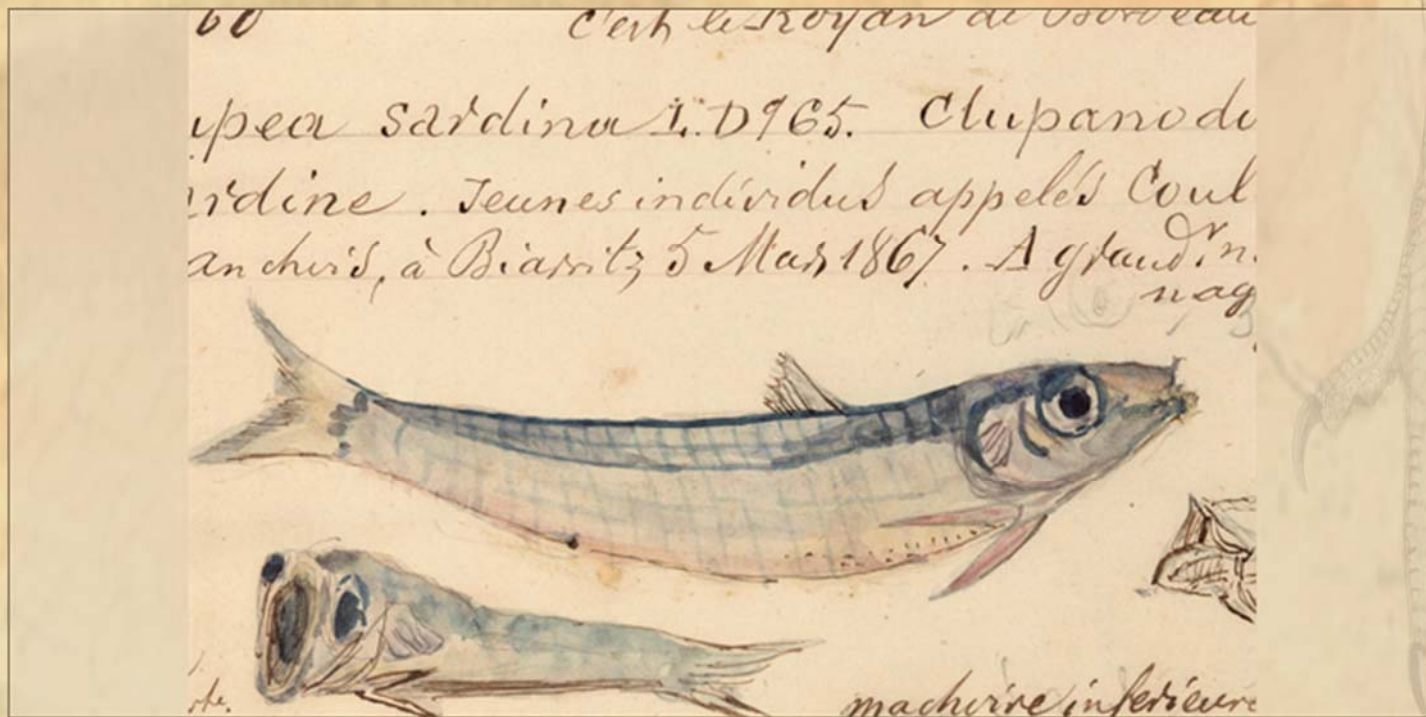 60 C'est le Royan de Bordeau
upea sardina L. D965. Clupanodo
ardine. Jeunes individus appelés Coul
anchois, à Biarritz 5 Mars 1867. A grand.r n.
nag
machoire inferieure